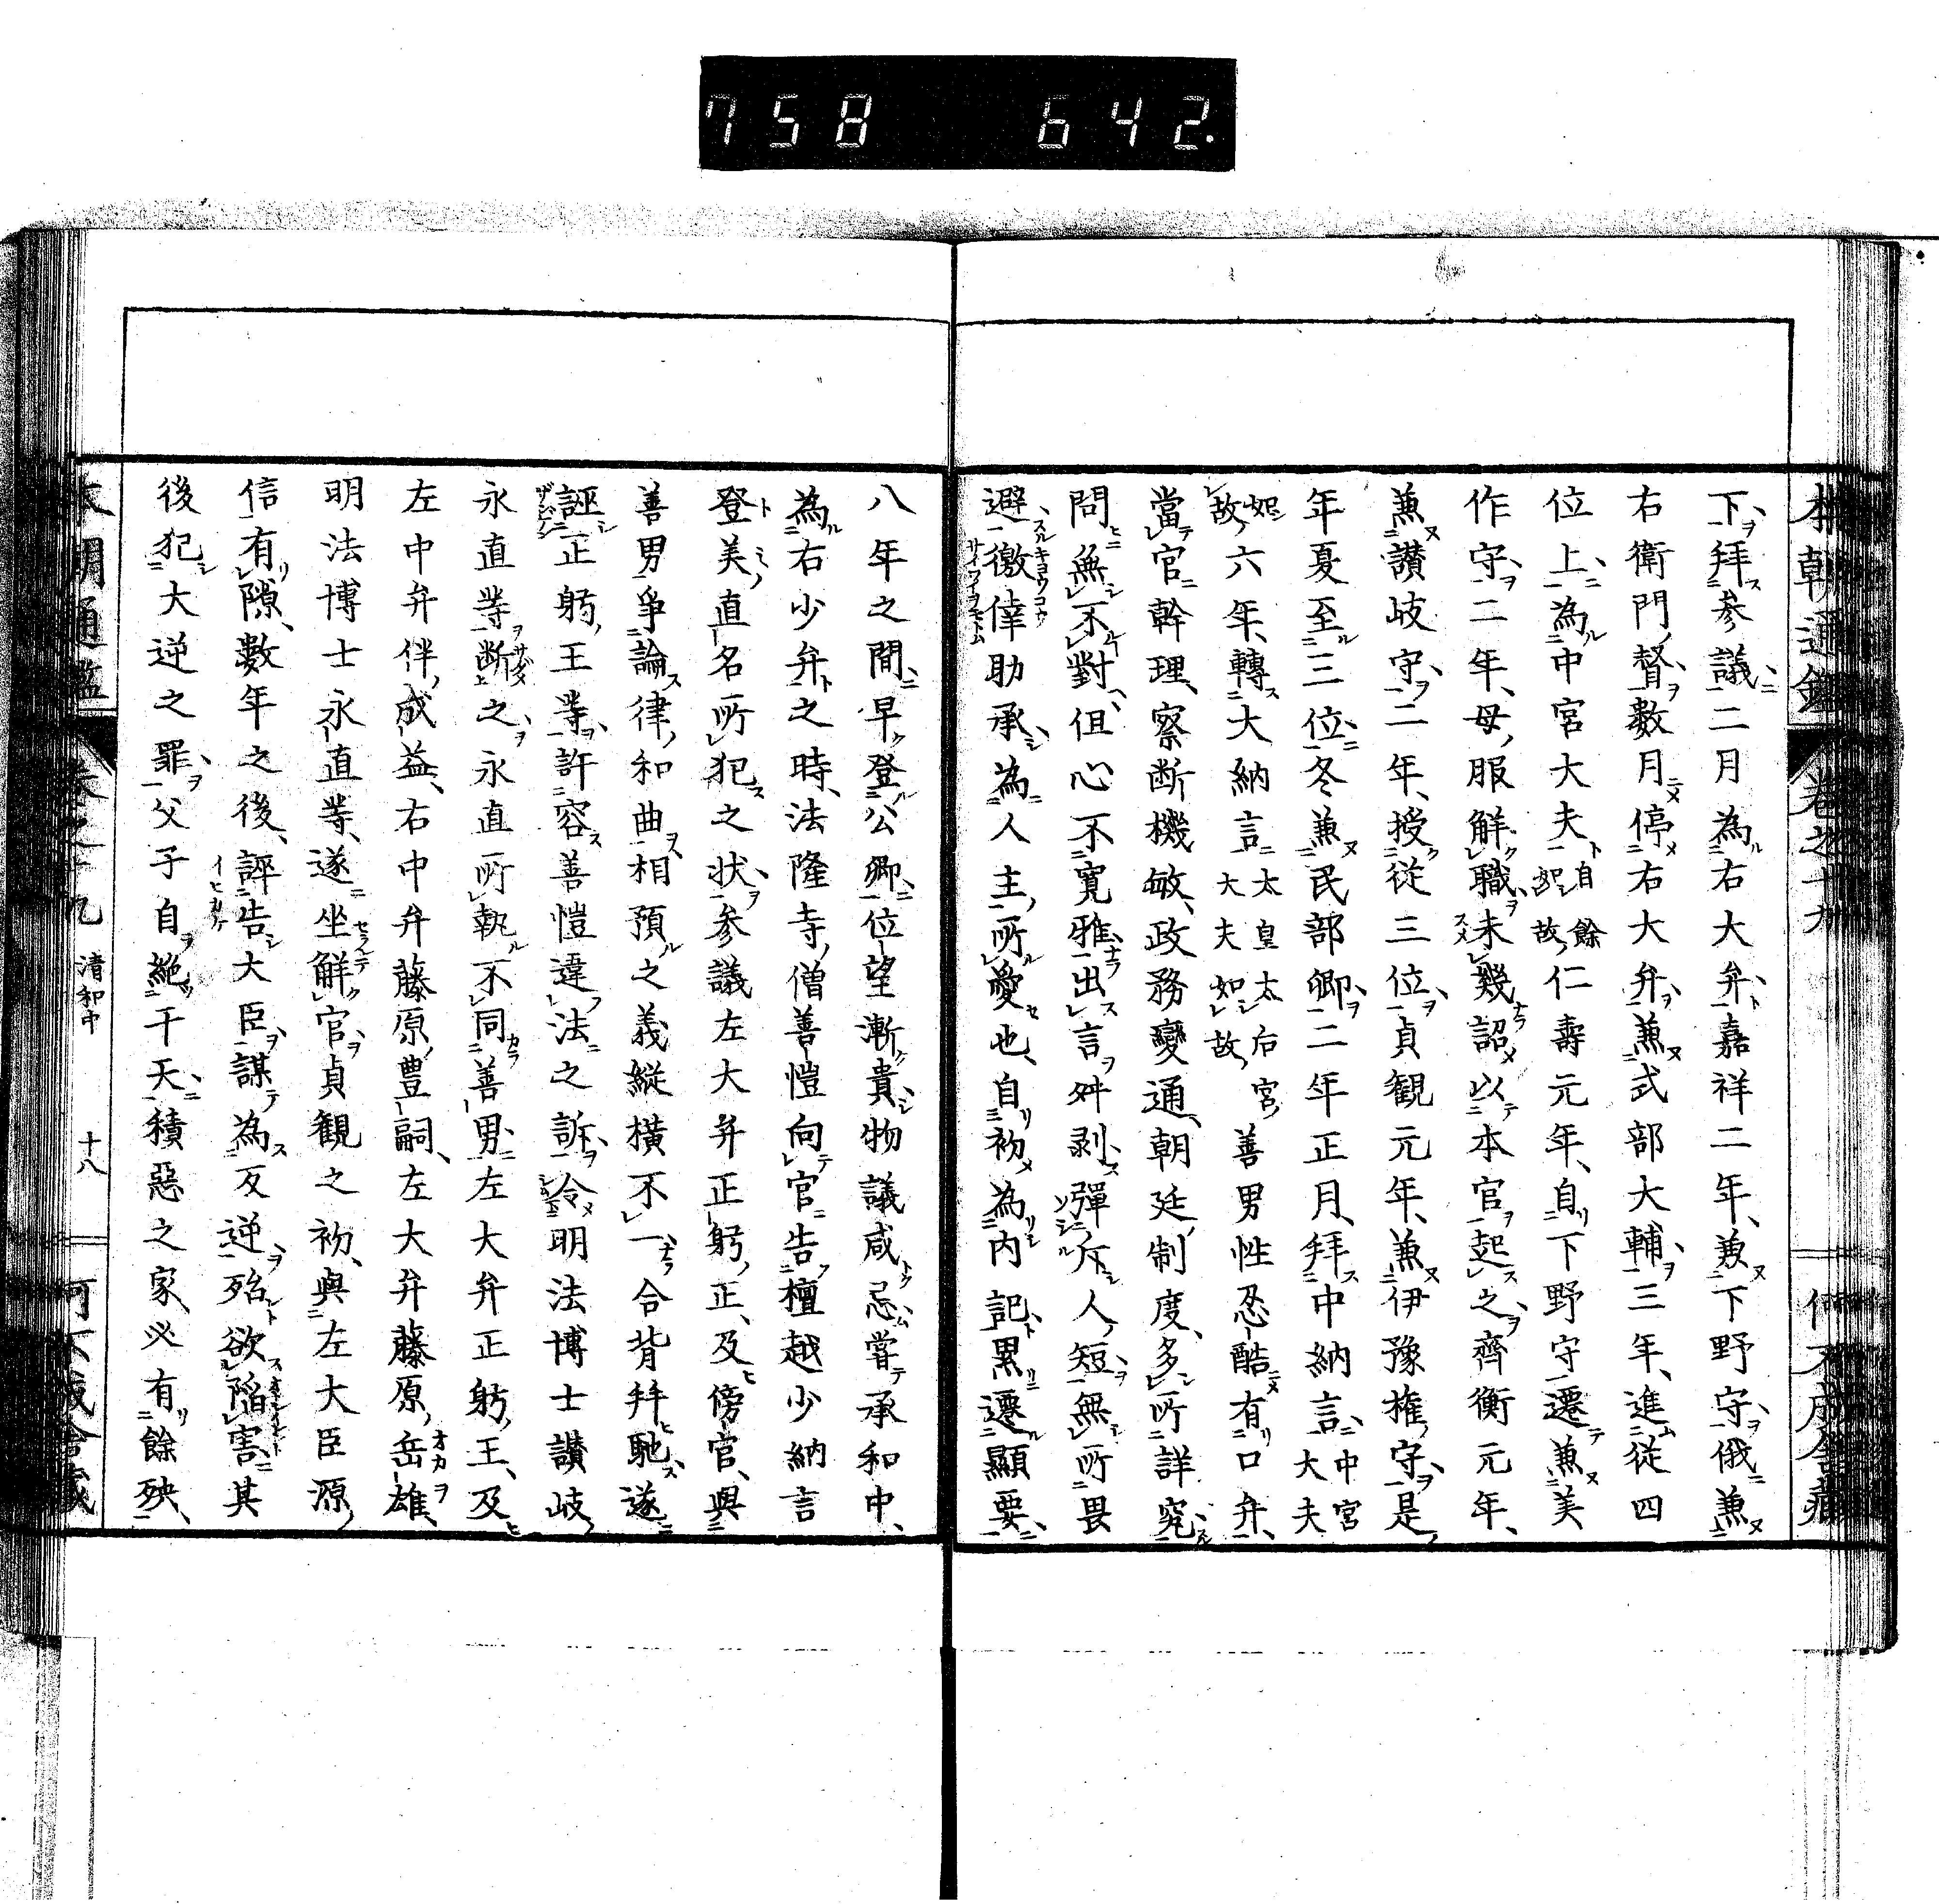 758 642.
本朝通鑑 卷之十九
下拜參議二月為右大弁嘉祥二年兼下野守俄兼
右衛門督數月停右大弁兼式部大輔三年進從四
位上為中宮大夫自餘如故仁壽元年自下野守遷兼美
作守二年母服解職未幾詔以本官起之齊衡元年
兼讃岐守二年授從三位貞觀元年兼伊豫權守是
年夏至三位冬兼民部卿二年正月拜中納言中宮大夫
如故六年轉大納言太皇太后宮大夫如故善男性忍酷有口弁
當官幹理察断機敏政務變通朝廷制度多所詳究
問無不對但心不寬雅出言舛剥彈斥人短無所畏
避徼倖助承為人主所愛也自初為內記累遷顯要
八年之間早登公卿位望漸貴物議咸忌嘗承和中
為右少弁之時法隆寺僧善愷向官告檀越少納言
登美直名所犯之状參議左大弁正躬正及傍官與
善男爭論律和曲相預之義縱橫不一合背拜馳遂
誣正躬王等許容善愷違法之訴令明法博士讃岐
永直等断之永直所執不同善男左大弁正躬王及
左中弁伴成益右中弁藤原豊嗣左大弁藤原岳雄
明法博士永直等遂坐解官貞觀之初與左大臣源
信有隙數年之後誣告大臣謀為反逆殆欲陷害其
後犯大逆之罪父子自絶于天積惡之家必有餘殃
本朝通鑑 卷之十九 清和中 十八